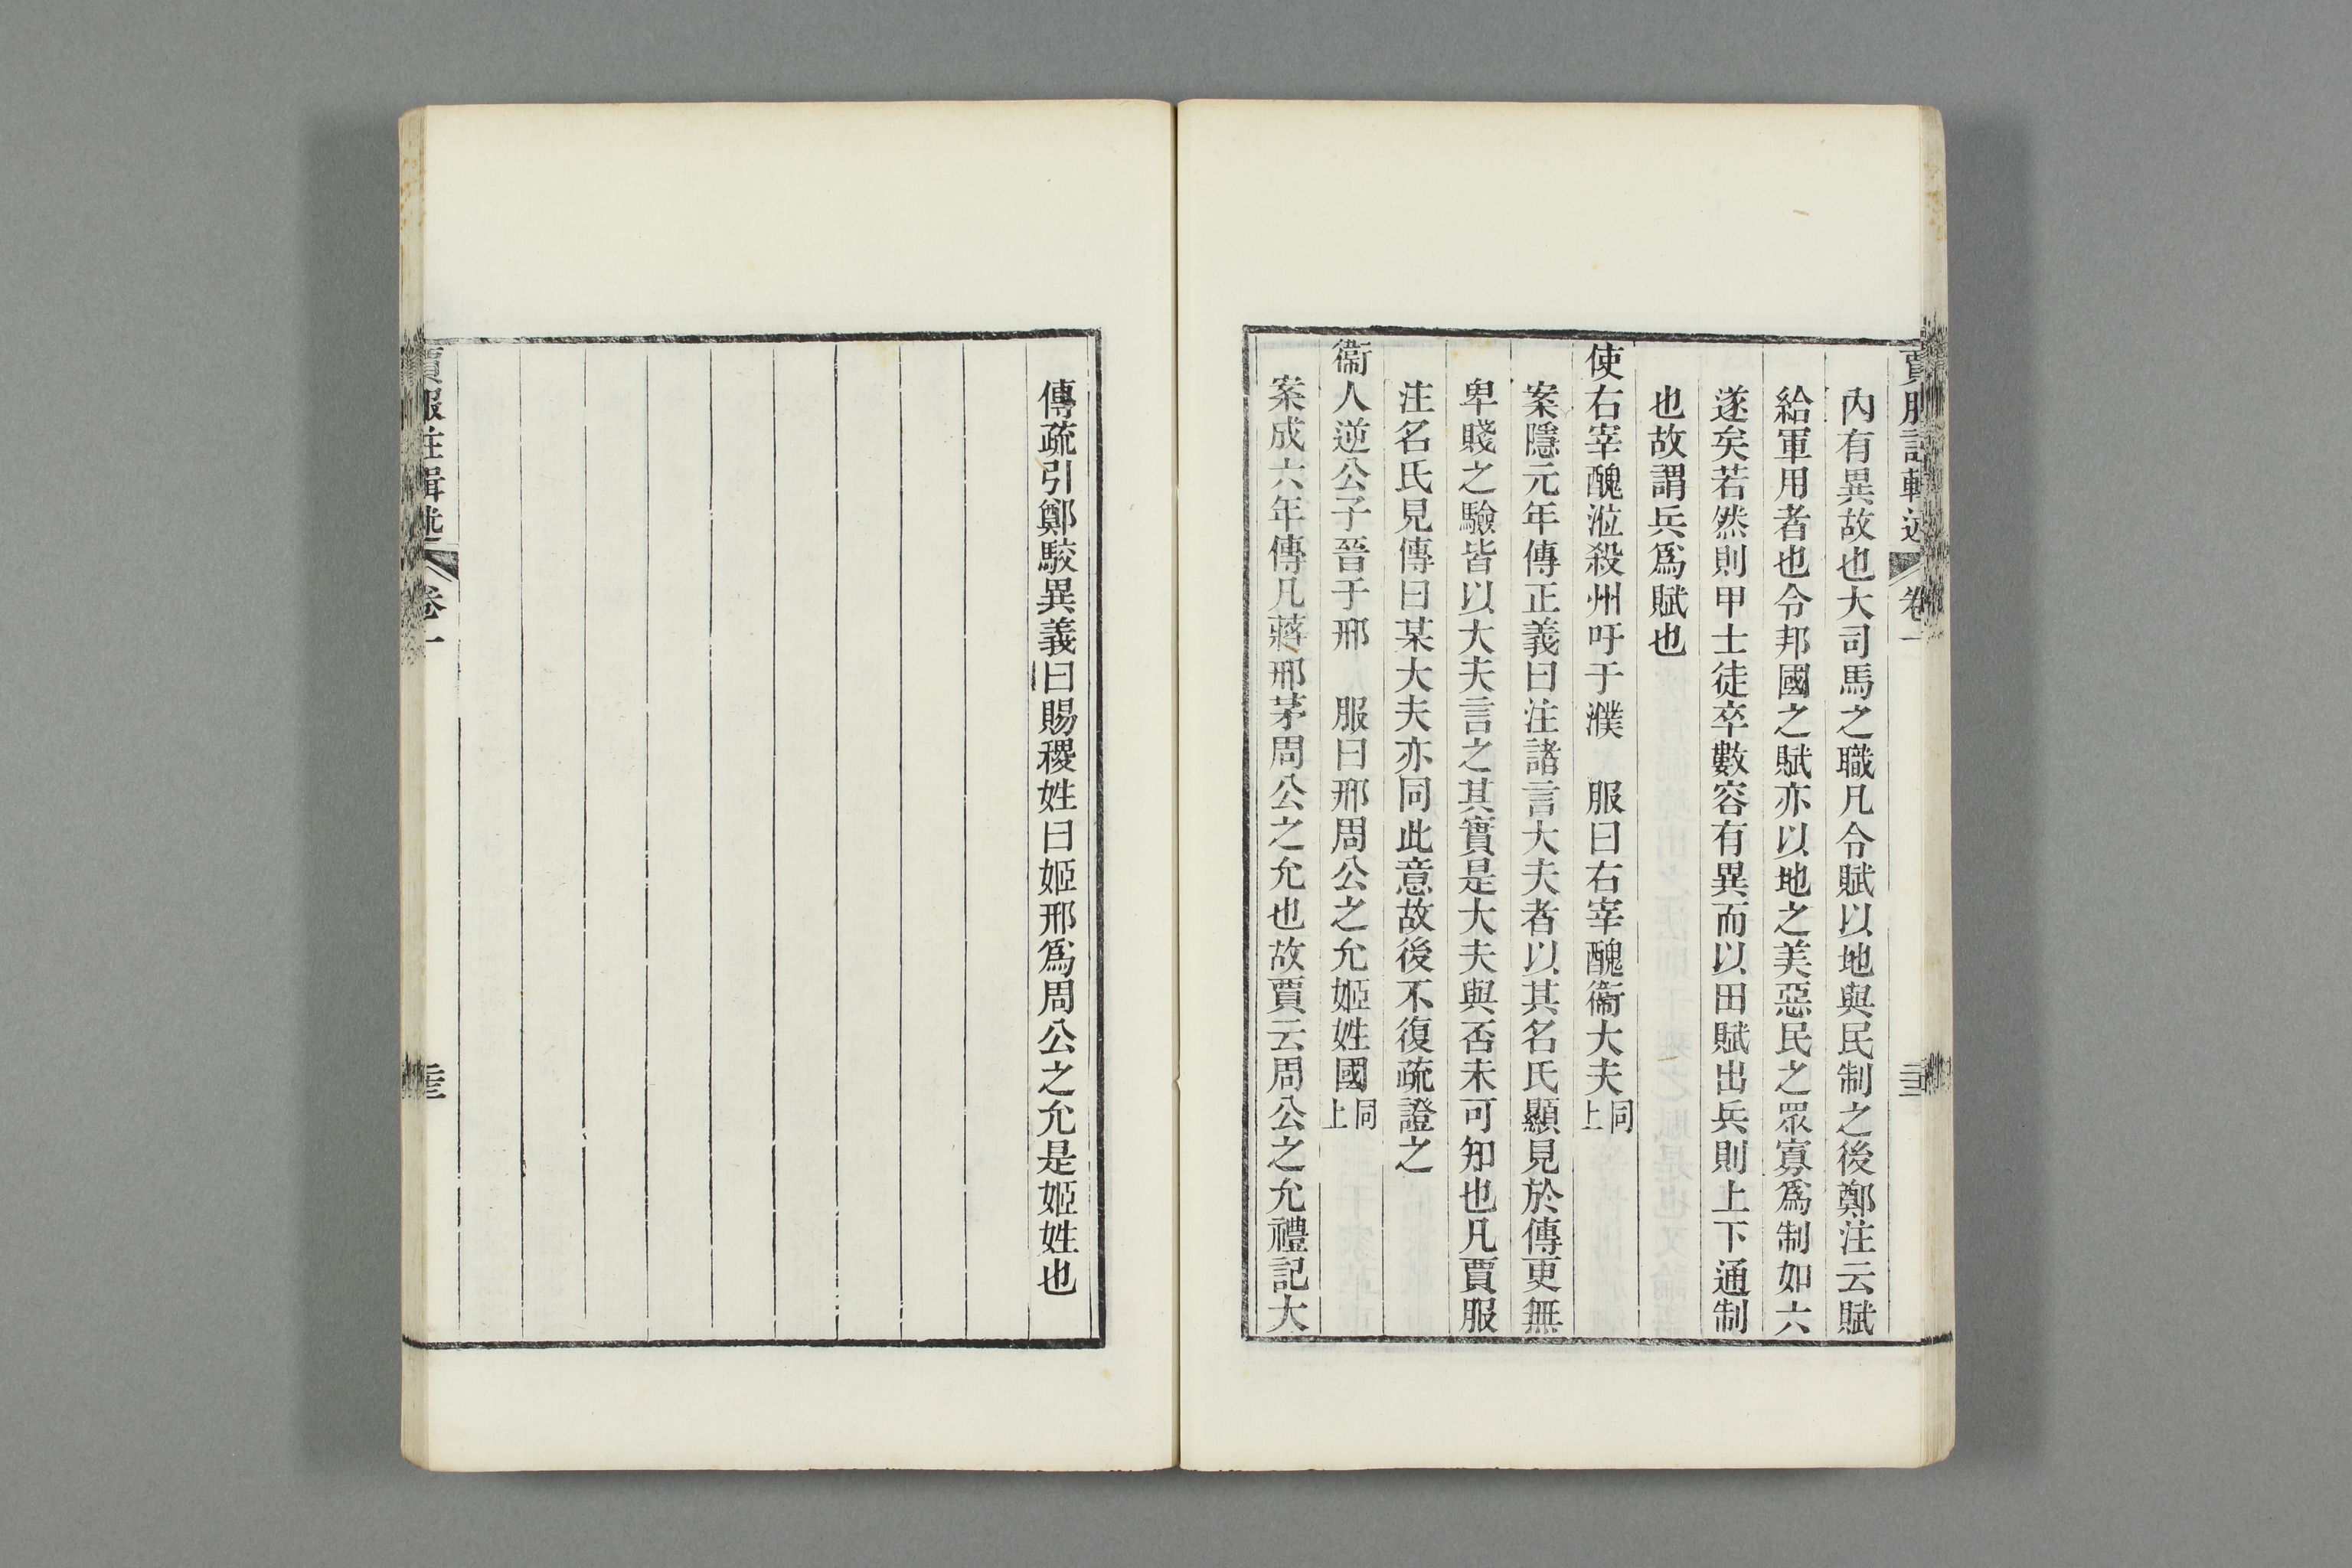 內有異故也大司馬之職凡令賦以地與民制之後鄭注云賦
給軍用者也令邦國之賦亦以地之美惡民之眾寡爲制如六
遂矣若然則甲士徒卒數容有異而以田賦出兵則上下通制
也故謂兵爲賦也
使右宰醜涖殺州吁于濮　服曰右宰醜衞大夫同上
案隱元年傳正義曰注諸言大夫者以其名氏顯見於傳更無
卑賤之驗皆以大夫言之其實是大夫與否未可知也凡賈服
注名氏見傳曰某大夫亦同此意故後不復疏證之
衞人逆公子晉于邢　服曰邢周公之允姬姓國同上
案成六年傳凡蔣邢茅周公之允也故賈云周公之允禮記大
傳疏引鄭駮異義曰賜稷姓曰姬邢爲周公之允是姬姓也
賈服注輯述　卷一